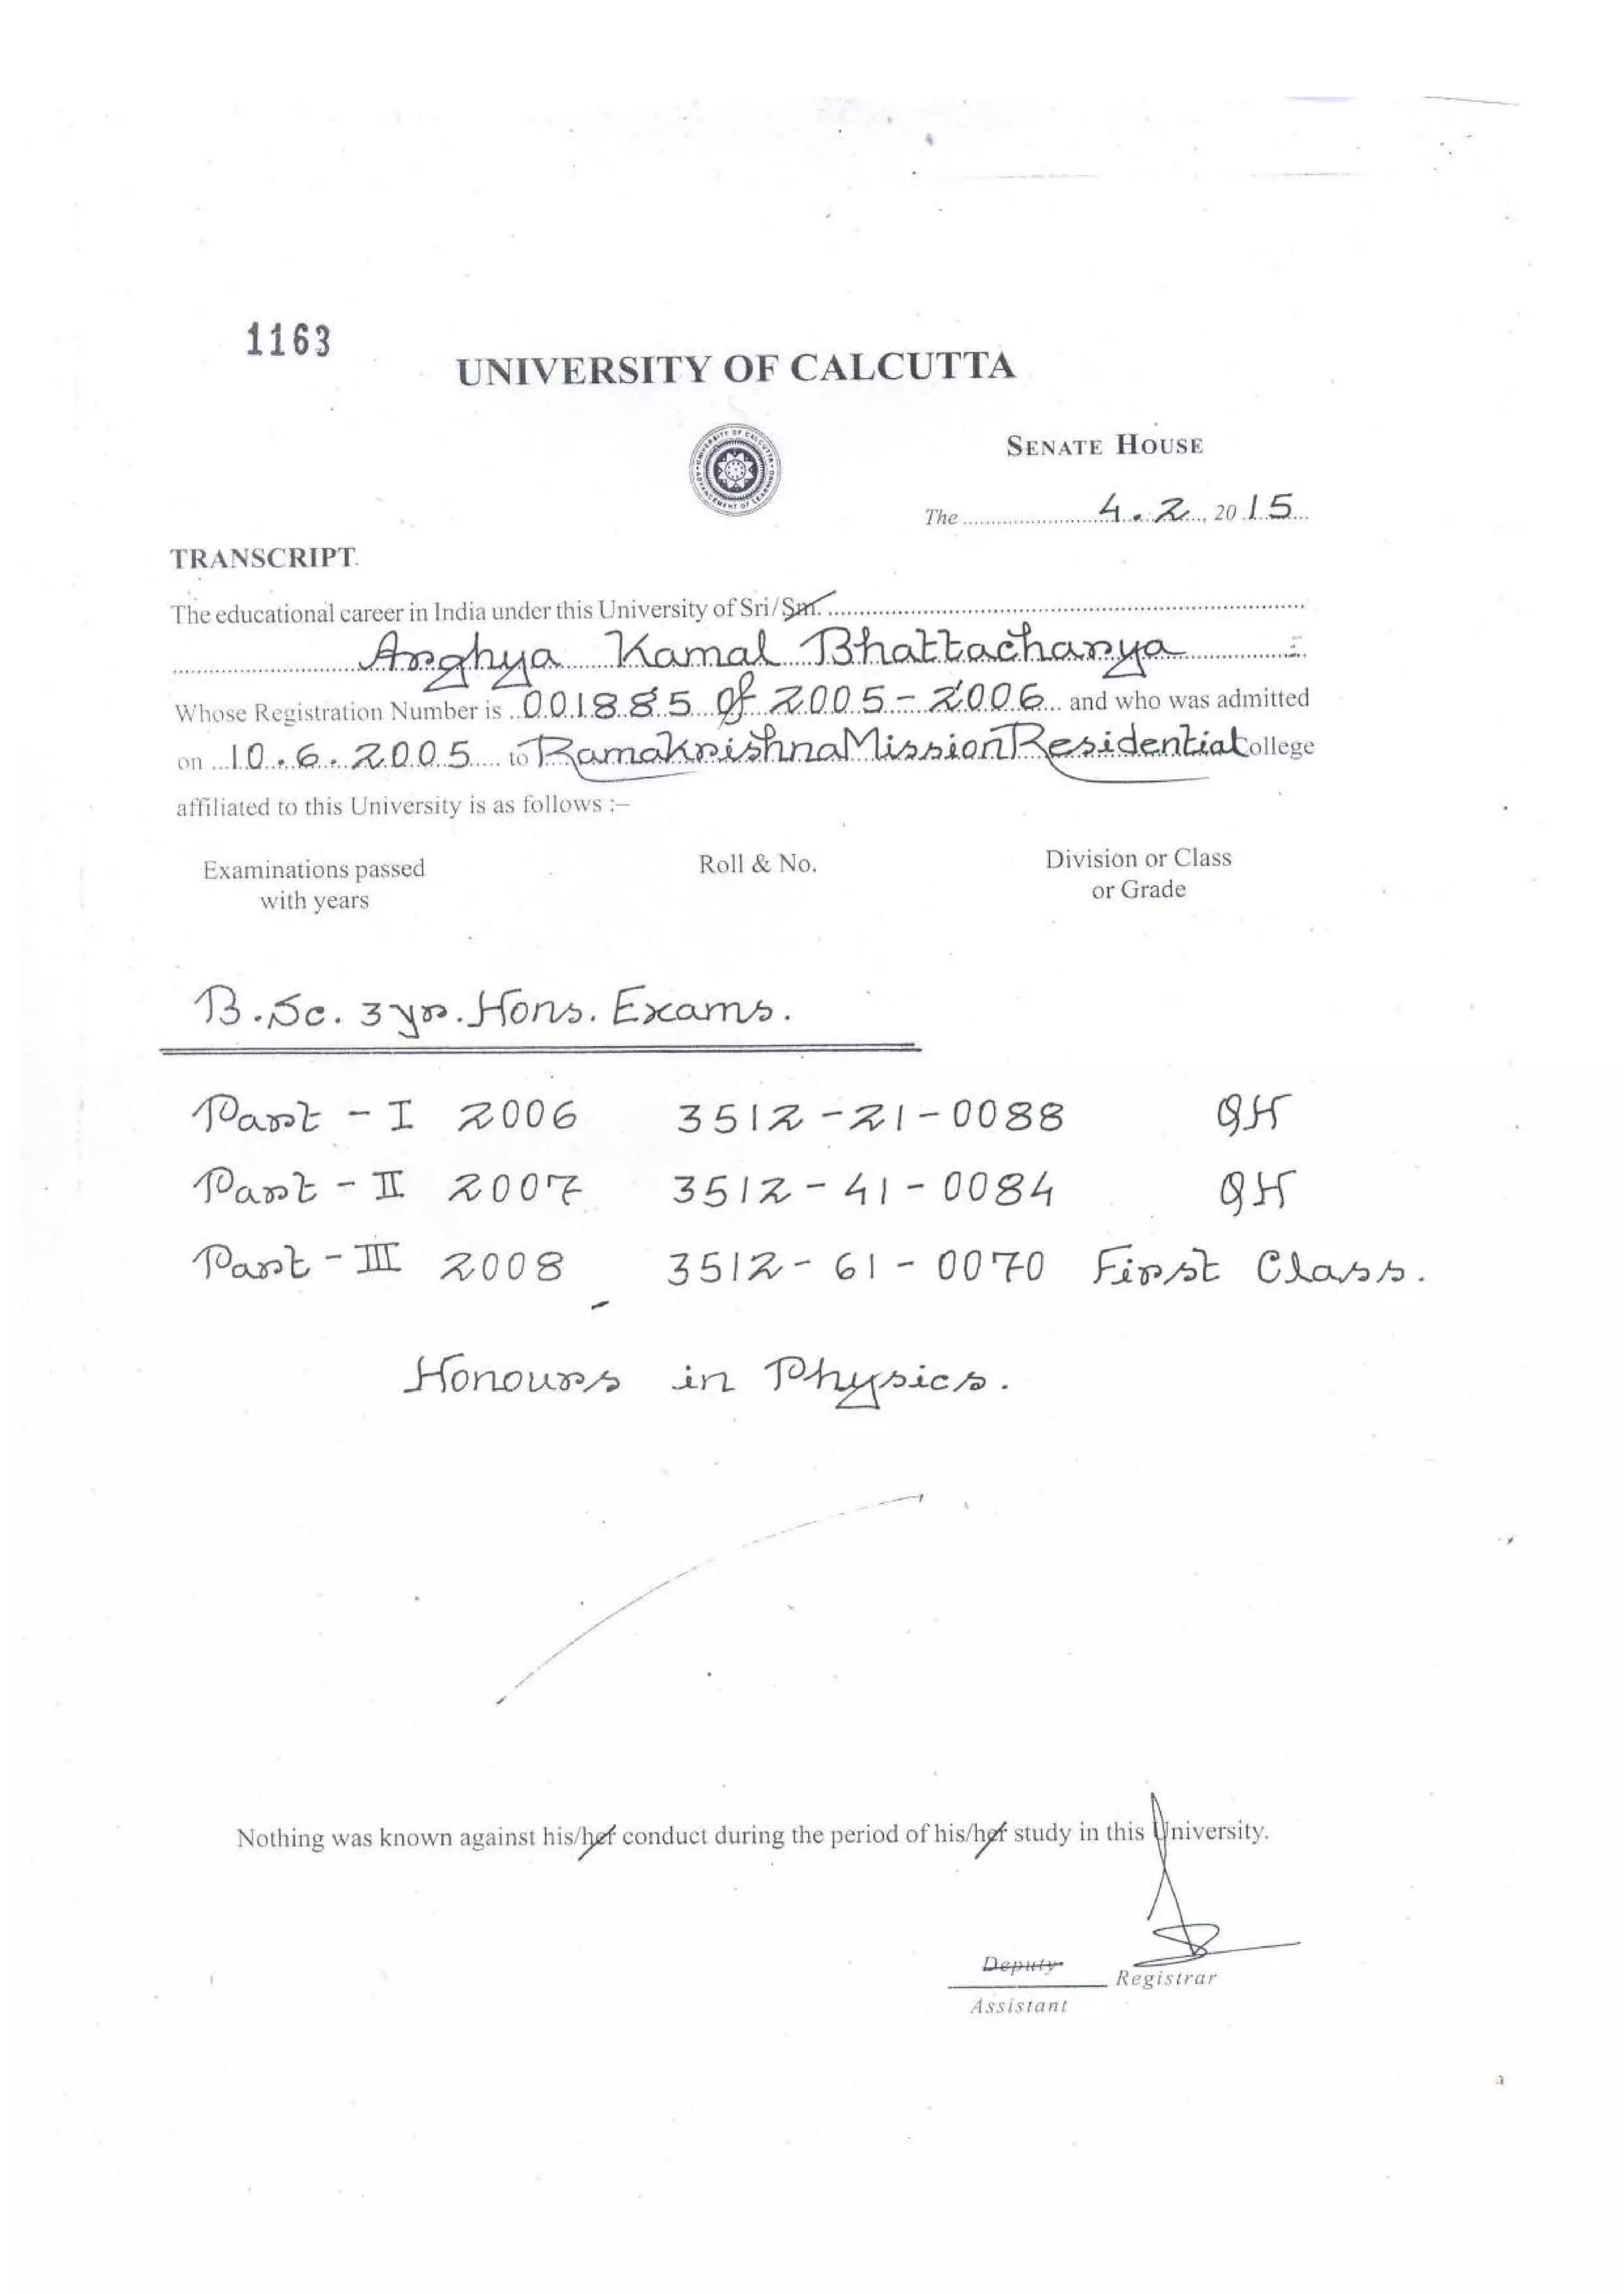 1163
UNIVERSITY OF CALCUTTA
UNIVERSITY OF CALCUTTA ADVANCEMENT OF LEARNING
SENATE HOUSE
The ........ 4.2..., 20 15
TRANSCRIPT.
The educational career in India under this University of Sri/Smt. ........
Arghya Kamal Bhattacharya
Whose Registration Number is 001885 of 2005-2006 and who was admitted
on 10.6.2005 to Ramakrishna Mission Residential College
affiliated to this University is as follows :–
Examinations passed with years Roll & No. Division or Class or Grade
B.Sc. 3yr. Hons. Exams.
Part - I 2006 3512-21-0088 QH
Part - II 2007 3512-41-0084 QH
Part - III 2008 3512-61-0070 First Class.
Honours in Physics.
Nothing was known against his/her conduct during the period of his/her study in this University.
Deputy
Registrar
Assistant